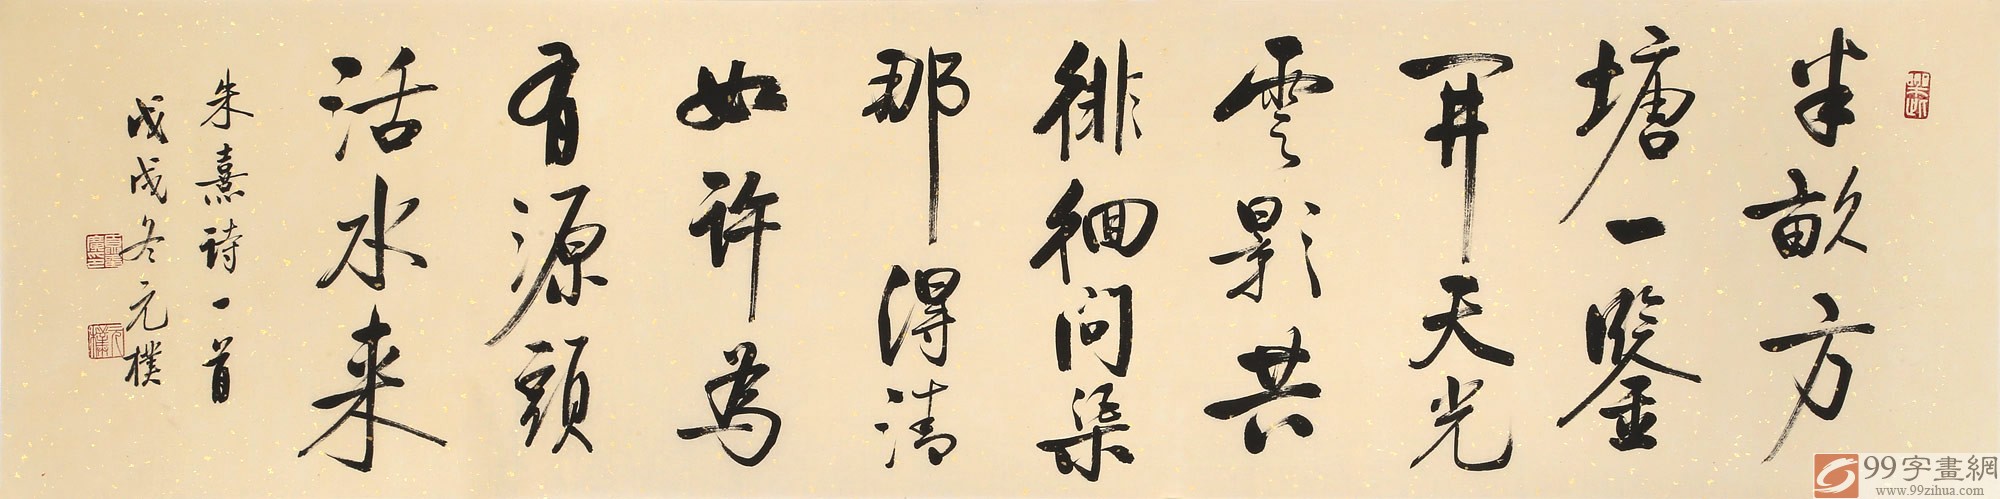 半畝方
塘一鑒
開天光
雲影共
徘徊問渠
那得清
如許為
有源頭
活水來
朱熹詩一首
戊戌冬元樸
99字畫網
www.99zihua.com